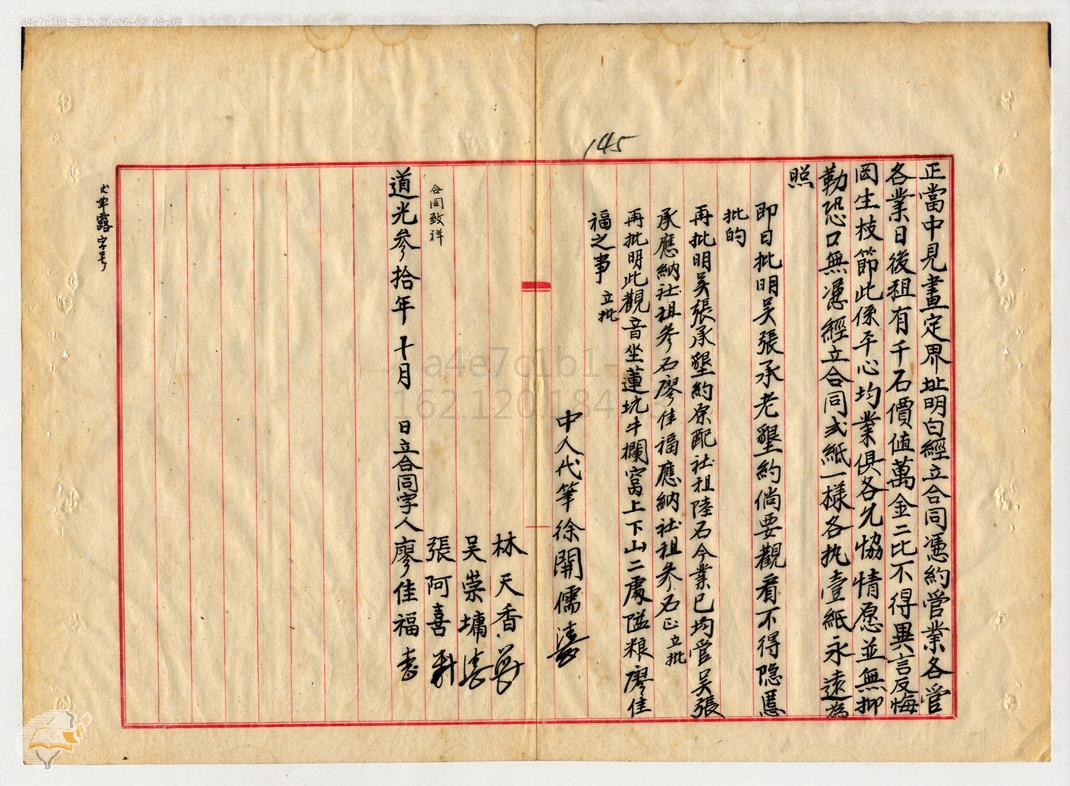 145
正當中見畫定界址明白經立合同憑約管業各管
各業日後租有千石價值萬金二比不得異言反悔
因生枝節此係平心均業俱各允協情愿並無抑
勒恐口無憑經立合同貳紙一樣各执壹紙永遠為
照
即日批明吴張承老墾約倘要觀看不得隐匿
批的
再批明吴張承墾約原配社租陸石今業已均管吴張
承應納社租参石廖佳福應納社租参石正立批
再批明此觀音坐蓮坑牛欄窩上下山二處隘粮廖佳
福之事 立批
中人代筆徐開儒
林天香
吴榮墉
張阿喜
道光參拾年十月 日立合同字人廖佳福
合同致祥
露字号
a4e7c1b1-
162.120.184